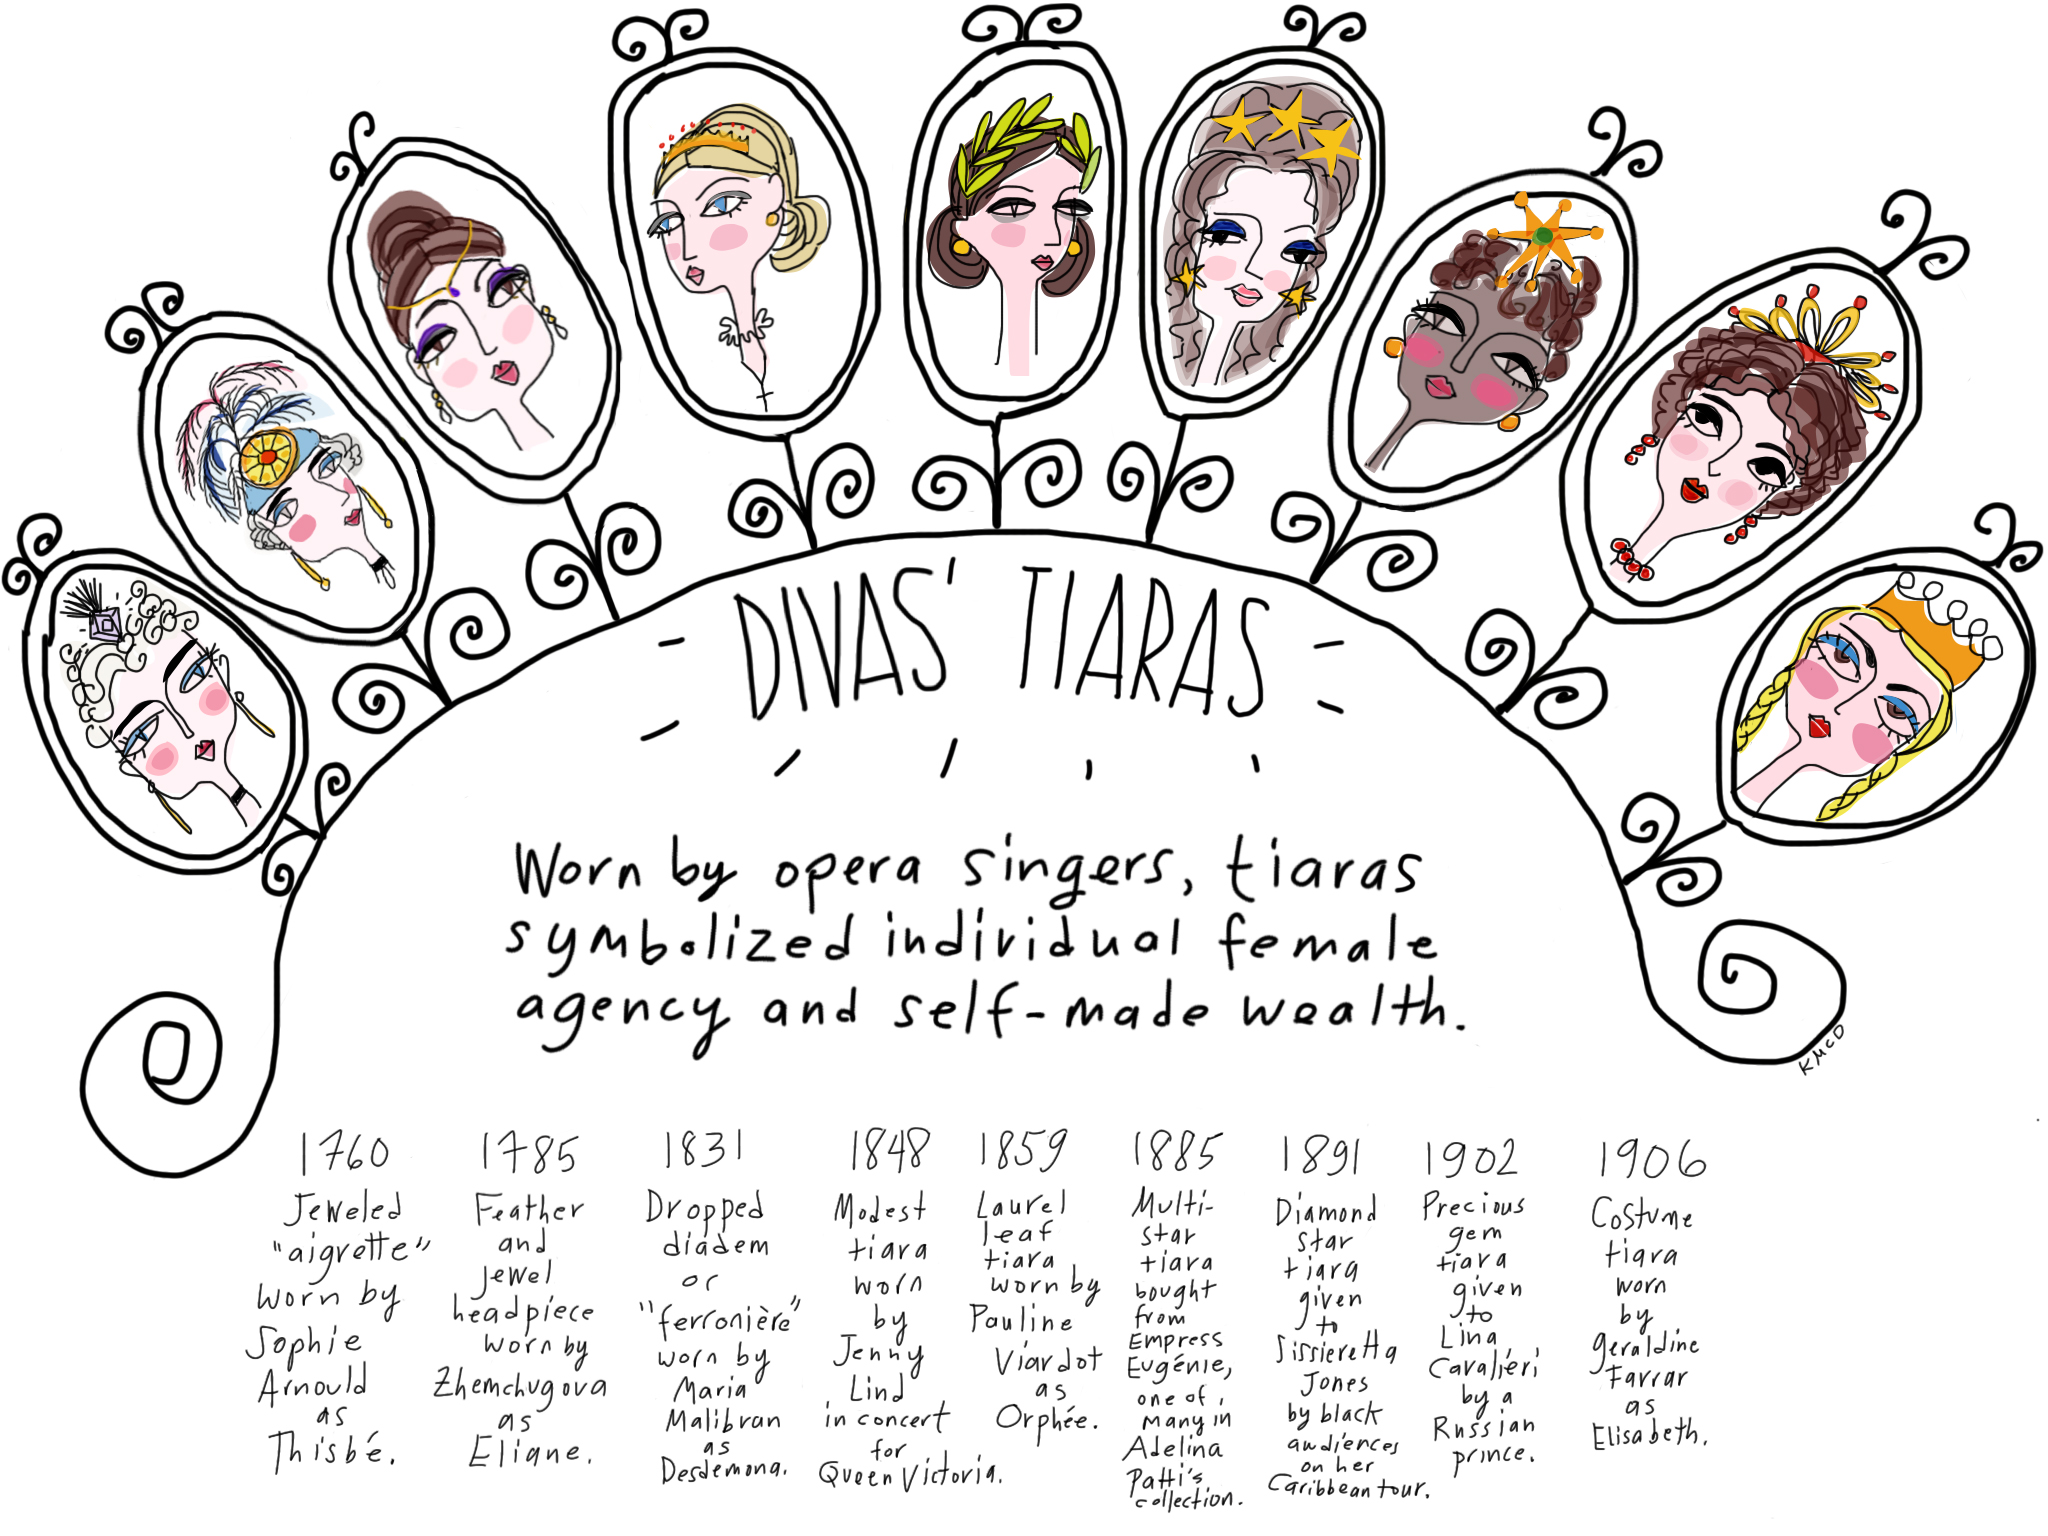 DIVAS' TIARAS
Worn by opera singers, tiaras
symbolized individual female
agency and self-made wealth.
KMCD
1760
Jeweled
"aigrette"
worn by
Sophie
Arnould
as
Thisbé.
1785
Feather
and
jewel
headpiece
worn by
Zhemchugova
as
Eliane.
1831
Dropped
diadem
or
"ferronière"
worn by
Maria
Malibran
as
Desdemona.
1848
Modest
tiara
worn
by
Jenny
Lind
in concert
for
Queen Victoria.
1859
Laurel
leaf
tiara
worn by
Pauline
Viardot
as
Orphée.
1885
Multi-
star
tiara
bought
from
Empress
Eugénie,
one of
many in
Adelina
Patti's
collection.
1891
Diamond
star
tiara
given
to
Sissieretta
Jones
by black
audiences
on her
Caribbean tour.
1902
Precious
gem
tiara
given
to
Lina
Cavaliéri
by a
Russian
prince.
1906
Costume
tiara
worn
by
Geraldine
Farrar
as
Elisabeth.